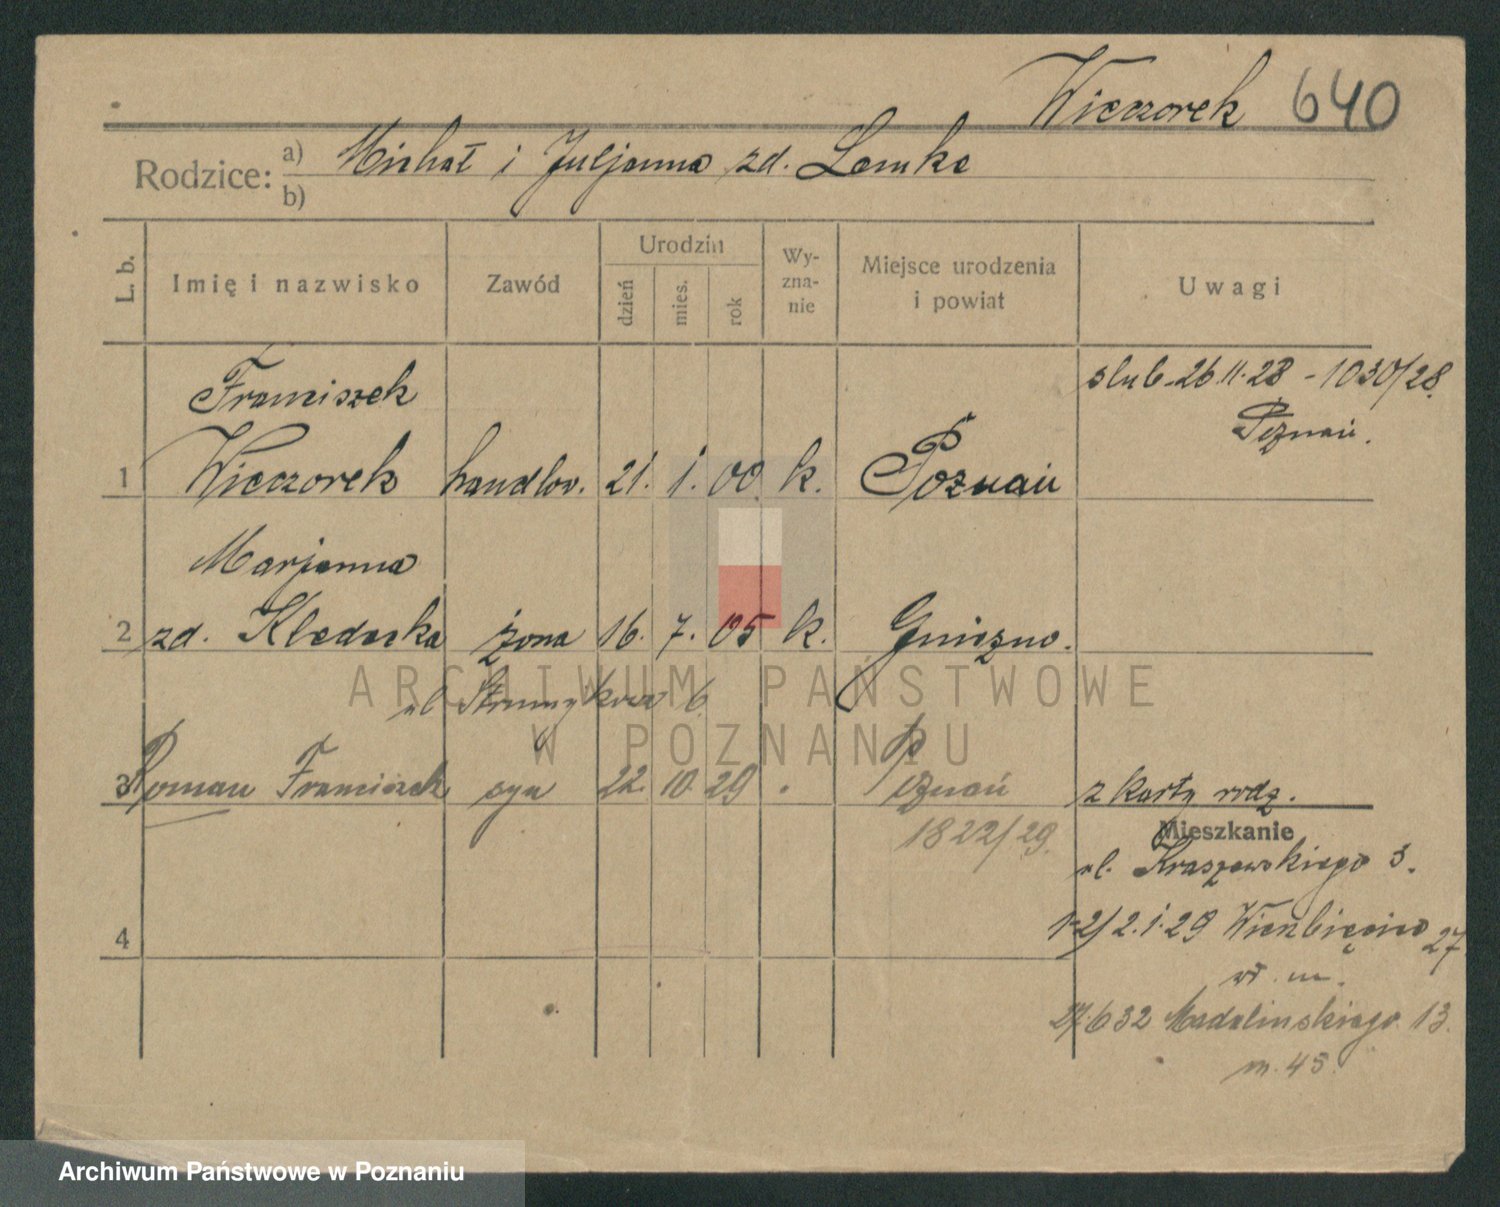 Wieczorek 640
Rodzice: a) Michał i Juljanna zd. Lemke
b)
L. b. Imię i nazwisko Zawód Urodzin dzień mies. rok Wy-zna-nie Miejsce urodzenia i powiat Uwagi
Franciszek slub 26.11.28 - 1030/28.
Poznań.
1 Wieczorek handlow. 21. 1. 00. k. Poznań
Marjanna
2 zd. Kledecka żona 16. 7. 05 k. Gniezno.
ul Strumykowa 6
3 Roman Franciszek syn 22. 10. 29 Poznań z karty rodz.
1822/29.
Mieszkanie
ul. Kraszewskiego 3.
1-2/2.1.29 Wierzbięcice 27
wł. m.
27.6 32 Madalinskiego 13.
m. 45.
4
ARCHIWUM PAŃSTWOWE
W POZNANIU
Archiwum Państwowe w Poznaniu